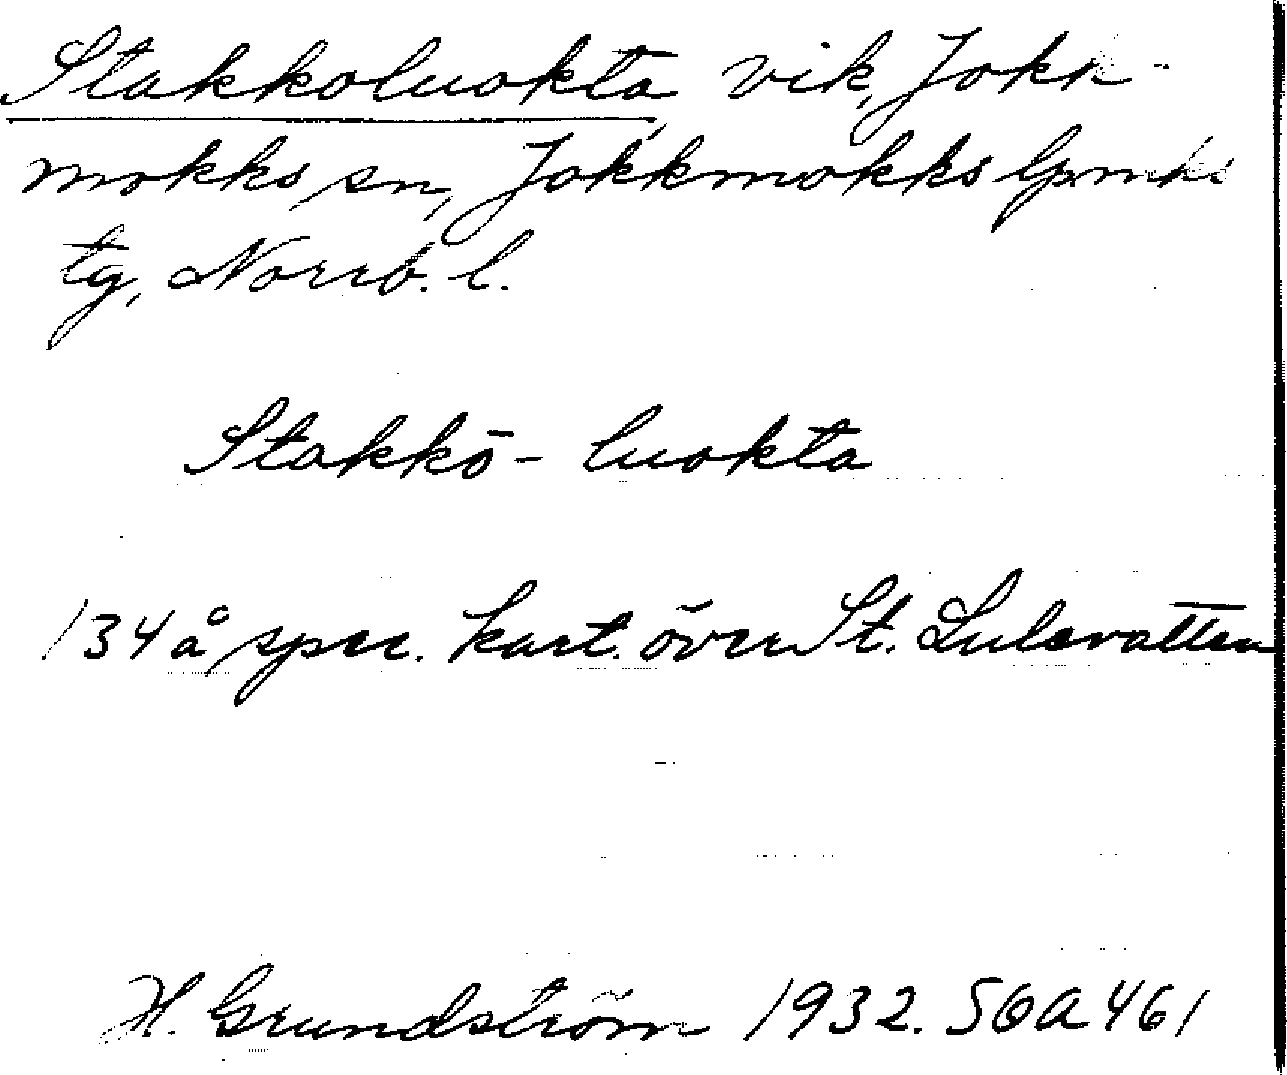 Stakkoluokta, vik, Jokk-
mokks sn, Jokkmokks lpmks
tg, Norrb. l.
Stakkō- luokta
134 å spec. kart. över St. Lulevatten
H. Grundström 1932. SOA 461